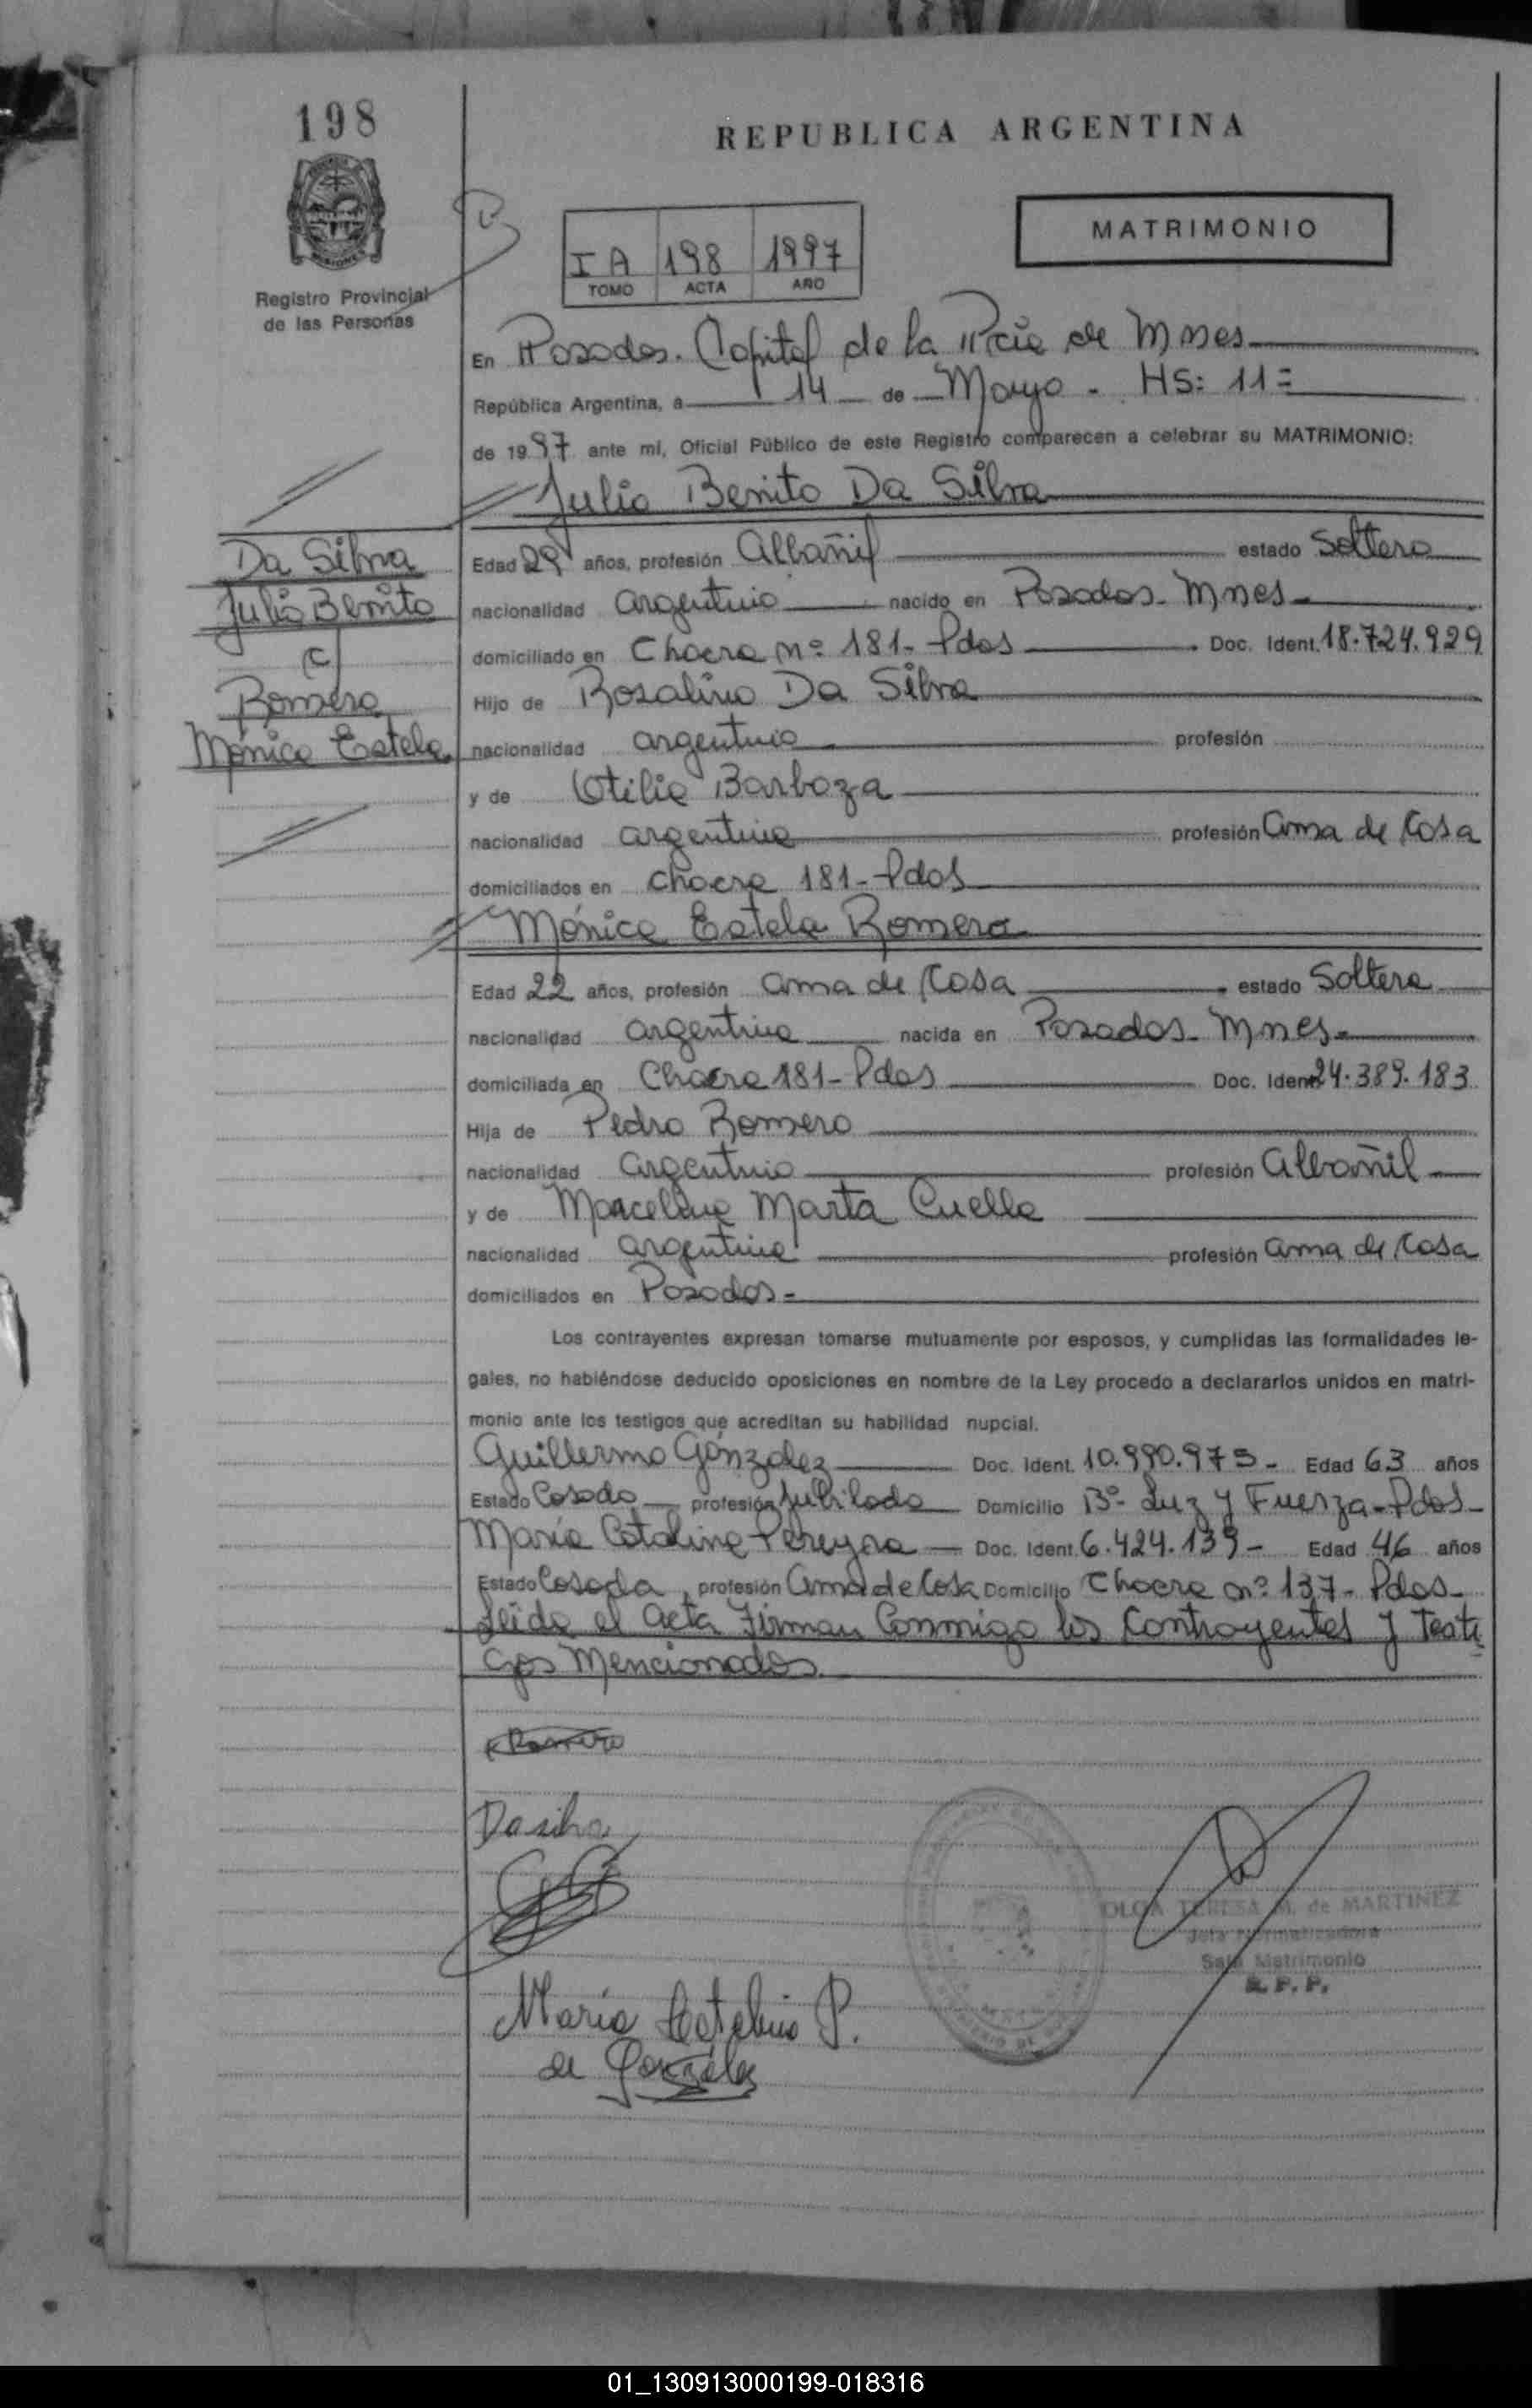 198
REPUBLICA ARGENTINA
MATRIMONIO
I A 198 1997
TOMO ACTA AÑO
Registro Provincial
de las Personas
En Posadas. Capital de la Pcia de Mnes
República Argentina, a 14 de Mayo - HS: 11=
de 1997 ante mi, Oficial Público de este Registro comparecen a celebrar su MATRIMONIO:
Julio Benito Da Silva
Da Silva
Julio Benito
c/
Romero
Mónica Estela
Edad 29 años, profesión Albañil estado Soltero
nacionalidad argentino nacido en Posadas - Mnes -
domiciliado en Chacra nº 181 - Pdas Doc. Ident. 18.724.929
Hijo de Rosalino Da Silva
nacionalidad argentino profesión
y de Otilia Barboza
nacionalidad argentina profesión ama de Casa
domiciliados en chacra 181 - Pdas
Mónica Estela Romero
Edad 22 años, profesión ama de Casa estado Soltera
nacionalidad argentina nacida en Posadas - Mnes -
domiciliada en Chacra 181 - Pdas Doc. Ident. 24.389.183
Hija de Pedro Romero
nacionalidad argentino profesión Albañil
y de Marcelina Marta Cuella
nacionalidad argentina profesión ama de Casa
domiciliados en Posadas -
Los contrayentes expresan tomarse mutuamente por esposos, y cumplidas las formalidades le-
gales, no habiéndose deducido oposiciones en nombre de la Ley procedo a declararlos unidos en matri-
monio ante los testigos que acreditan su habilidad nupcial.
Guillermo González Doc. Ident. 10.990.975 - Edad 63 años
Estado Casado profesión Jubilado Domicilio Bº Luz y Fuerza - Pdas -
María Catalina Pereyra Doc. Ident. 6.424.139 - Edad 46 años
Estado Casada profesión ama de Casa Domicilio Chacra nº 137 - Pdas -
Leída el acta Firman Conmigo los Contrayentes y Testi
gos Mencionados
Romero
Dasilva
María Catalina P.
de González
OLGA TERESA M. de MARTINEZ
Jefa Normatizadora
Sala Matrimonio
R. P. P.
01_130913000199-018316